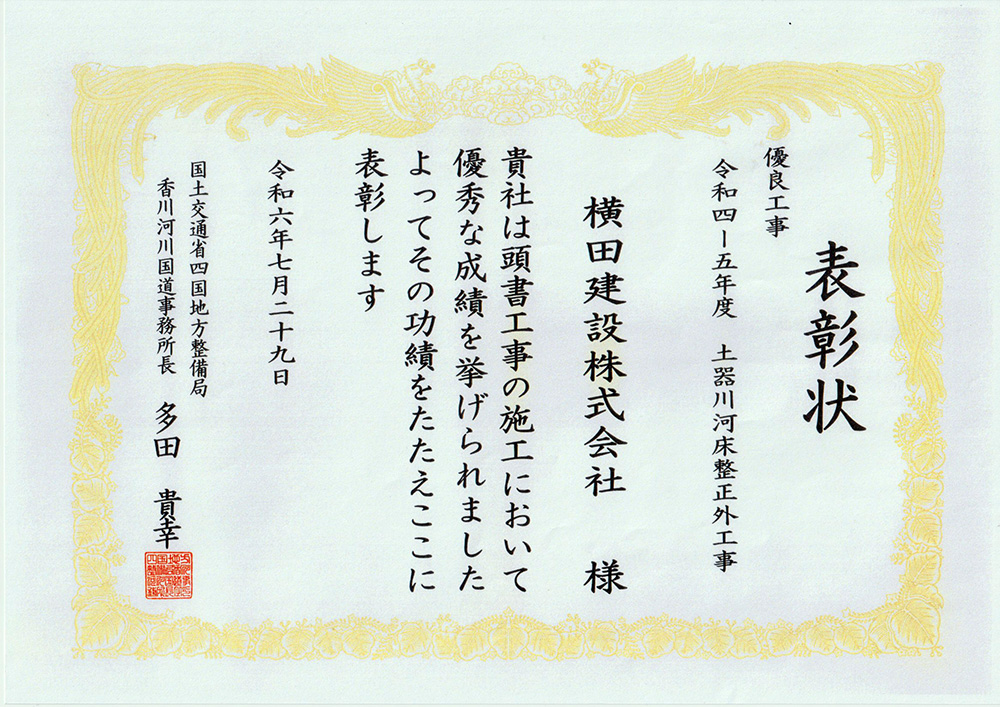 表彰状
優良工事
令和四ー五年度 土器川河床整正外工事
横田建設株式会社 様
貴社は頭書工事の施工において
優秀な成績を挙げられました
よってその功績をたたえここに
表彰します
令和六年七月二十九日
国土交通省四国地方整備局
香川河川国道事務所長 多田 貴幸